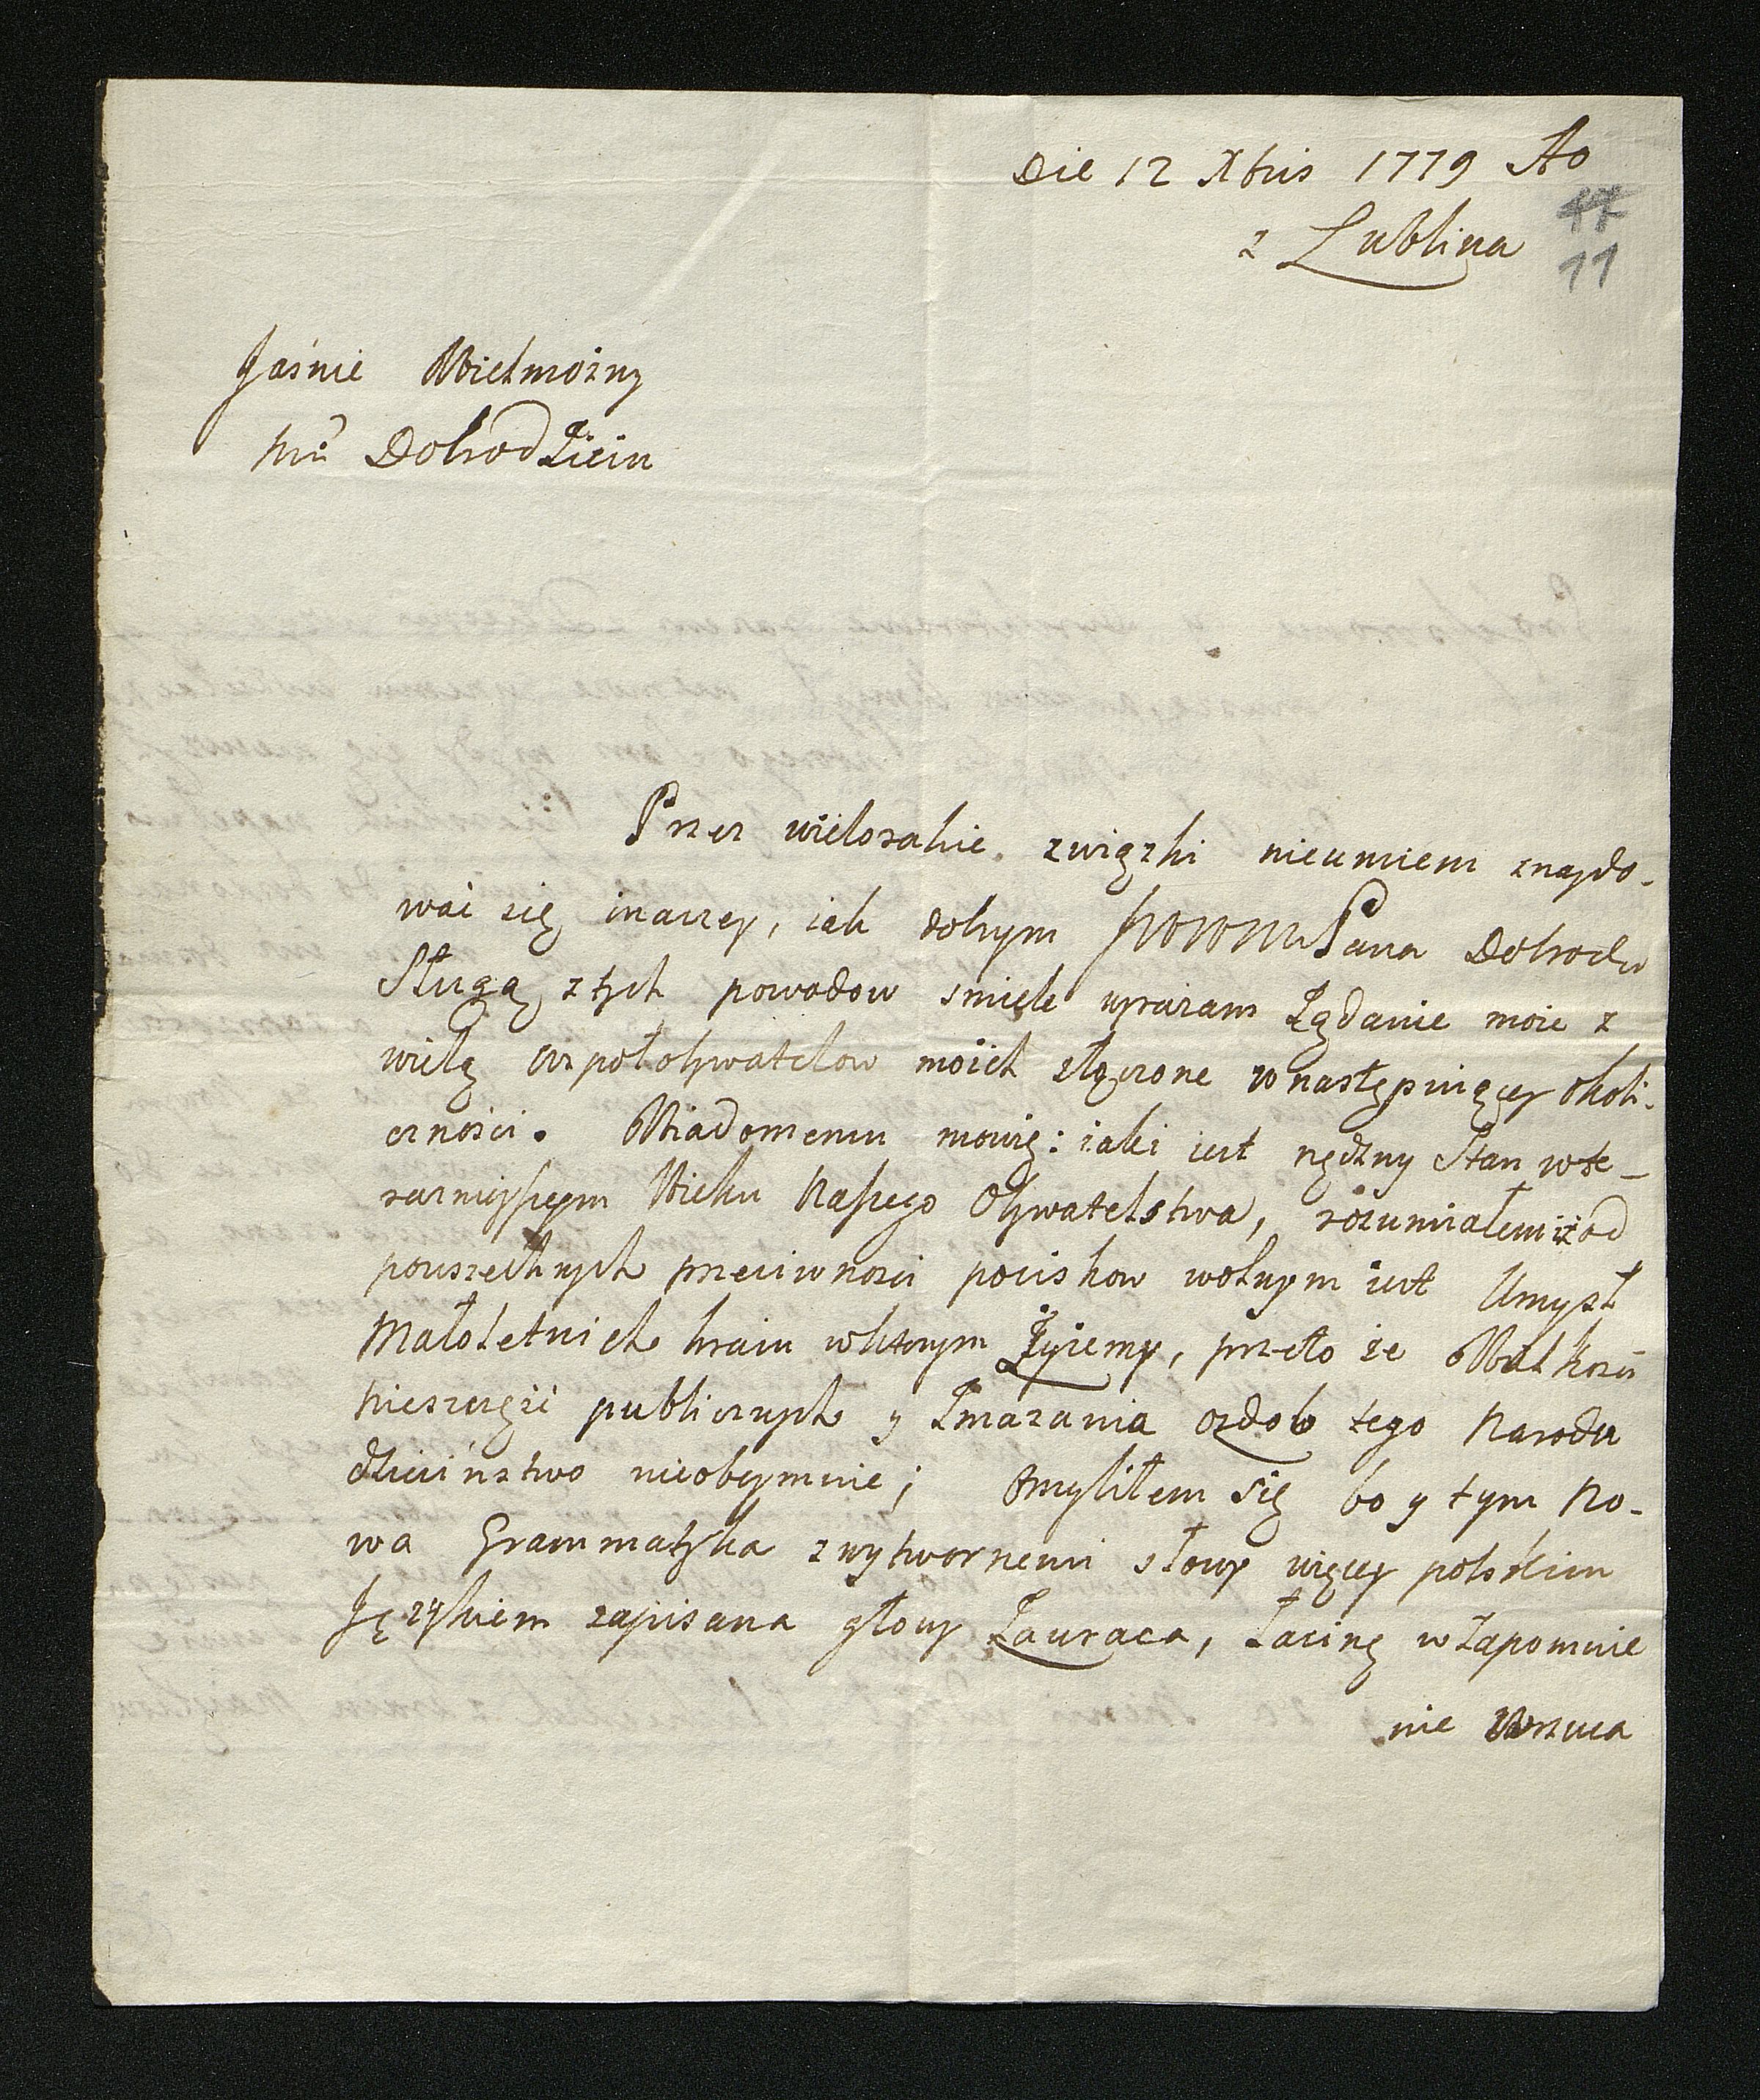 Die 12 Xbris 1779 Ao
z Lublina
17
11
Jaśnie Wielmożny
Mći Dobrodzieiu
Przez wielorakie związki nieumiem znaydo-
wać się inaczey, iak dobrym JWWMPana Dobrodz
Sługą, z tych powodow smiele wyrażam Żądanie moie z
wielą wspołobywatelow moich złączone w następuiącey okoli-
czności. Wiadomemu mowię: iaki iest nędzny Stan w te-
raznieyszym Wieku Naszego Obywatelstwa, rozumiałem iż od
powszechnych przeciwności pociskow wolnym iest Umysł
Małoletnich kraiu w ktorym Żyiemy, przeto że Wielkość
nieszczęść publicznych y Zmazania ozdob tego Narodu
dziecinstwo nieobeymuie; omyliłem się bo y tym No-
wa Grammatyka z wytwornemi słowy więcey polskim
Językiem zapisana głowy Zawraca, Łacinę w Zapomnie
nie Wrzuca